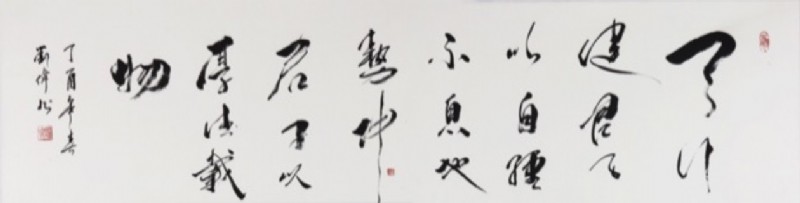 天行
健君子
以自强
不息地
势坤
君子以
厚德载
物
丁酉年春